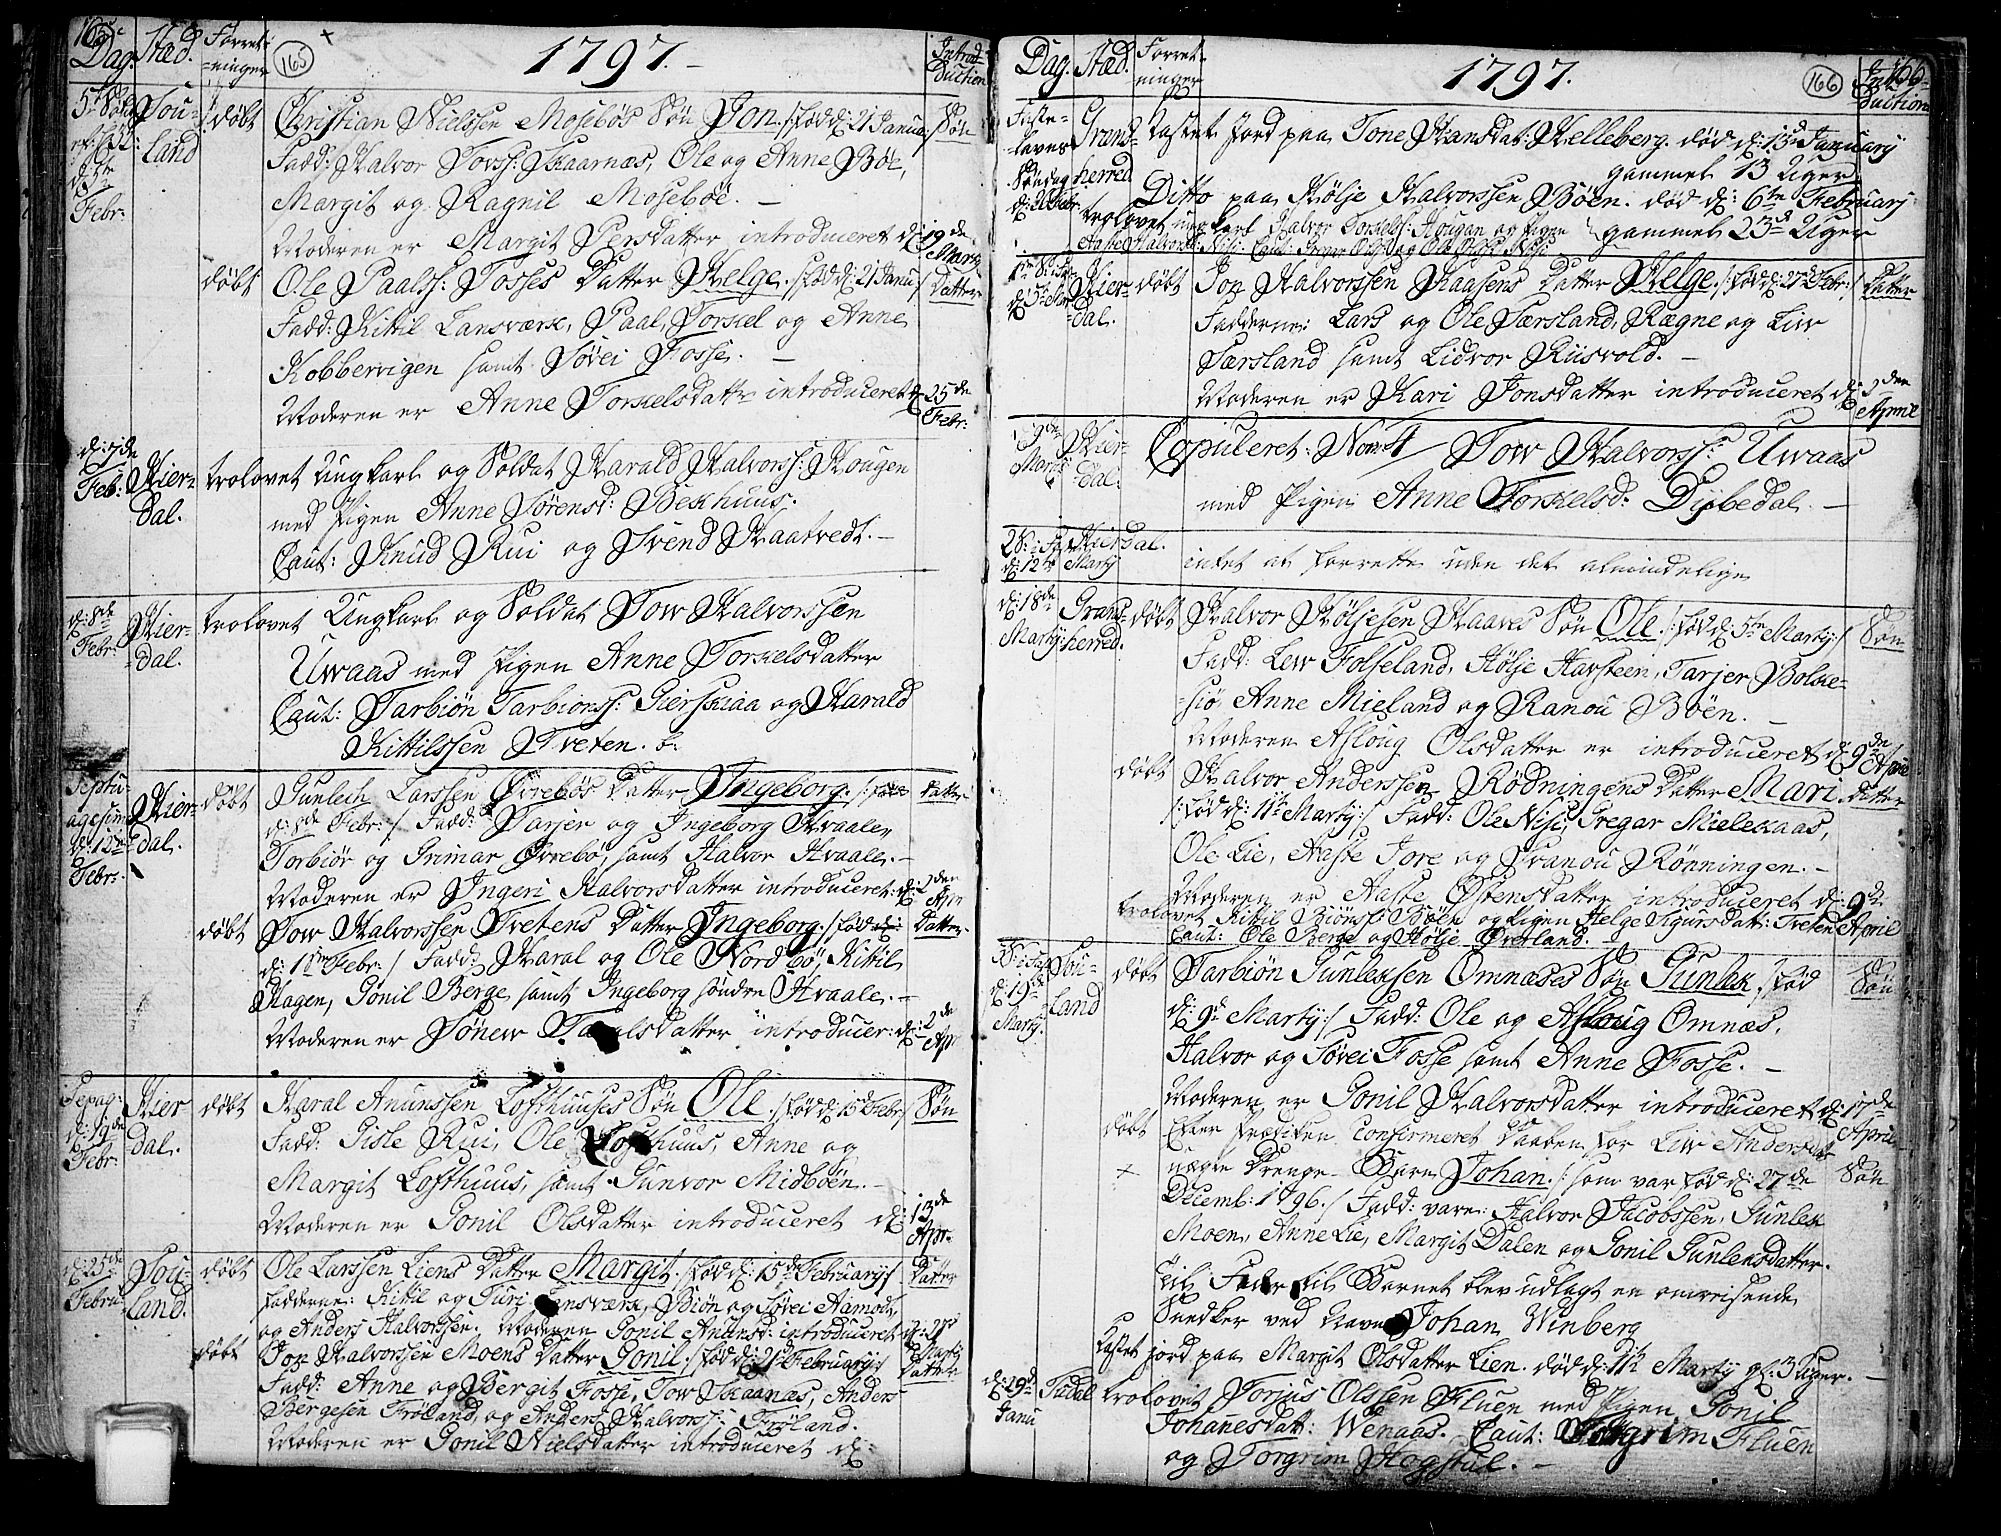 165
Dag. Stæd. Forret-
-ninger
165
1797.
Introd-
duction
5te Sønd:
d: 5te
Febr:
Sou-
land
døbt
Christian Nielssen Mosebøs Søn Jon. /: fød d: 21 Janua
Søn
Fadd: Halvor Tovs: Skaarnæs, Ole og Anne Bøe,
Margit og Ragnil Mosebøe. —
Moderen er Margit Persdatter introduceret d: 19de
Marty
døbt
Ole Paals: Fosses Datter Helge. /: fød d: 21 Janu:/
Datter
Fadd: Kittil Lansværk, Paal, Torkel og Anne
Kobbervigen samt Søvei Fosse. —
Moderen er Anne Torkelsdatter introduceret d: 25de
Febr:
d: 7de
Feb:
Hier-
dal.
trolovet Ungkarl og Soldat Harald Halvors: Hougen
med Pigen Anne Sørensd: Bekhuus.
Caut: Knud Rui og Svend Haatvedt. —
d: 8de
Febr:
Hier-
dal.
trolovet Ungkarl og Soldat Tow Halvorssen
Uwaas med Pigen Anne Torkelsdatter
Caut: Tarbiøn Tarbions: Gierskaa og Harald
Kittilssen Tveten.
Septu-
agesim
d: 12te
Febr:
Hier-
dal.
døbt
Gunlech Larssen Øvrebøs Datter Ingeborg. /: fød
Datter
d: 8de Febr:/ Fadd: Tarjer og Ingeborg Hvaale,
Torbiør og Grimar Øvrebø, samt Halvor Hvaale. —
Moderen er Ingeri Halvorsdatter introduceret: d: 2den
Apr
døbt
Tow Halvorssen Tvetens Datter Ingeborg. /: fød
Datter
d: 11te Febr:/ Fadd: Haral og Ole Nordbø, Kittil
Hagen, Gonil Berge samt Ingeborg søndre Hvaale. —
Moderen er Sønew datter introducer: d: 2de
Apr
Sexag:
d: 19de
Febr:
Hier
dal.
døbt
Haral Anunssen Lofthuuses Søn Ole. /: fød d: 15d Febr:/
Søn
Fadd: Gisle Rui, Ole Lofthuus, Anne og
Margit Lofthuus, samt Gunvor Midbøen. —
Moderen er Gonil Olsdatter introduceret d: 13de
Apr
d: 25de
Febru
Sou-
land.
døbt
Ole Larssen Liens Datter Margit. /: fød d: 15d February:/
Datter
Fadderne: Kittil og Turi Lansværk, Biøn og Søvei Aamodt,
og Anders Halvorssen. Moderen Gonil Anunsd: introduceret d: 21d
Marty
døbt
Jon Halvorssen Moens Datter Gonil. /: fød d: 21d February:/
Datter
Fadd: Anne og Bergit Fosse, Tow Skaanæs, Anders
Bergesen Frøland, og Anders Halvors: Frøland.
Moderen er Gonil Nielsdatter introduceret d:
Dag. Stæd. Forret-
ninger
1797.
166
166
Intro-
duction
Faste-
lavns
Søndag
d: 26 Febr.
Grans-
herred
kastet Jord paa Tone Hansdat: Helleberg. død d: 13d January
gammel 13 Uger
Ditto paa Hølje Halvorssen Bøen. død d: 6te February
gammel 23d Uger
trolovet ungkarl Halvor Torkels: Hougan og Pigen
Aaste Halvorsd: Nisi. Caut: Ole Nisi
d: 5te Mar
Hier-
dal.
døbt
Jon Halvorssen Haasens Datter Helge. /: fød d: 27d Febr:/
Datter
Fadderne: Lars og Ole Særsland, Rægne og Liw
Særsland samt Lidvor Riisvold. —
Moderen er Kari Jonsdatter introduceret d: 2den
April
9de
Marty
Hier-
dal.
Copuleret: Nom 4 / Tow Halvors: Uwaas
med Pigen Anne Torkelsd: Dybedal. —
2 S: i Fa
d: 12te
Marty
Hierdal.
intet at forrette uden det almindelige
d: 18de
Marty
Grans-
herred.
døbt
Halvor Høljesen Haaves Søn Ole. /: fød d: 5te Marty:/
Søn
Fadd: Lew Folseland, Hølje Havsteen, Tarjer Bolke-
-siø Anne Mieland og Ranou Bøen. —
Moderen Asloug Olsdatter er introduceret d: 9den
April
døbt
Halvor Anderssen Rødningens Datter Mari
Datter
/: fød d: 11te Marty:/ Fadd: Ole Nisi, Gregar Mielekaas,
Ole Lie, Aaste Jore og Svanou Rønningen. —
Moderen er Aaste Østensdatter introduceret d: 9de
April
trolovet Kittil Biøns: Bøle og Pigen Helge Sigursdat: Tveten
Caut: Ole Berge og Hølje Øverland. —
3 S: i Fa
d: 19de
Marty.
Sou-
land
døbt
Tarbiøn Gunleksen Omnæses Søn Gunlek. /: fød
Søn
d: 9d Marty:/ Fadd: Ole og Asloug Omnæs,
Halvor og Søvei Fosse samt Anne Fosse. —
Moderen er Gonil Halvorsdatter introduceret d: 17de
April
døbt
Efter Prædiken Confirmeret Daaben for Liw Andersdatter
×
uægte Drenge-Barn Johan. /: som var fød d: 27de
Søn
Decemb: 1796. / Fadd: vare: Halvor Jacobssen, Gunlek
Moen, Anne Lie, Margit Dalen og Gonil Gunleksdatter.
Til Fader til Barnet blev udlagt en omreisende
Snedker ved Navn Johan Winberg
kastet jord paa Margit Olsdatter Lien. død d: 11te Marty gl: 3 Uger. —
d: 29d
Janu
Tudal
trolovet Torjus Olssen Fluen med Pigen Gonil
Johanesdatt: Wenaas. Caut: Torgrim Fluen
og Torgrim Hogstul. —